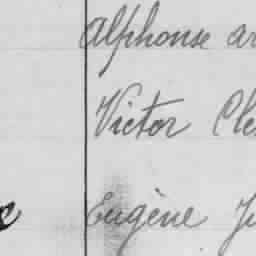 Alphonse
Victor
Eugène